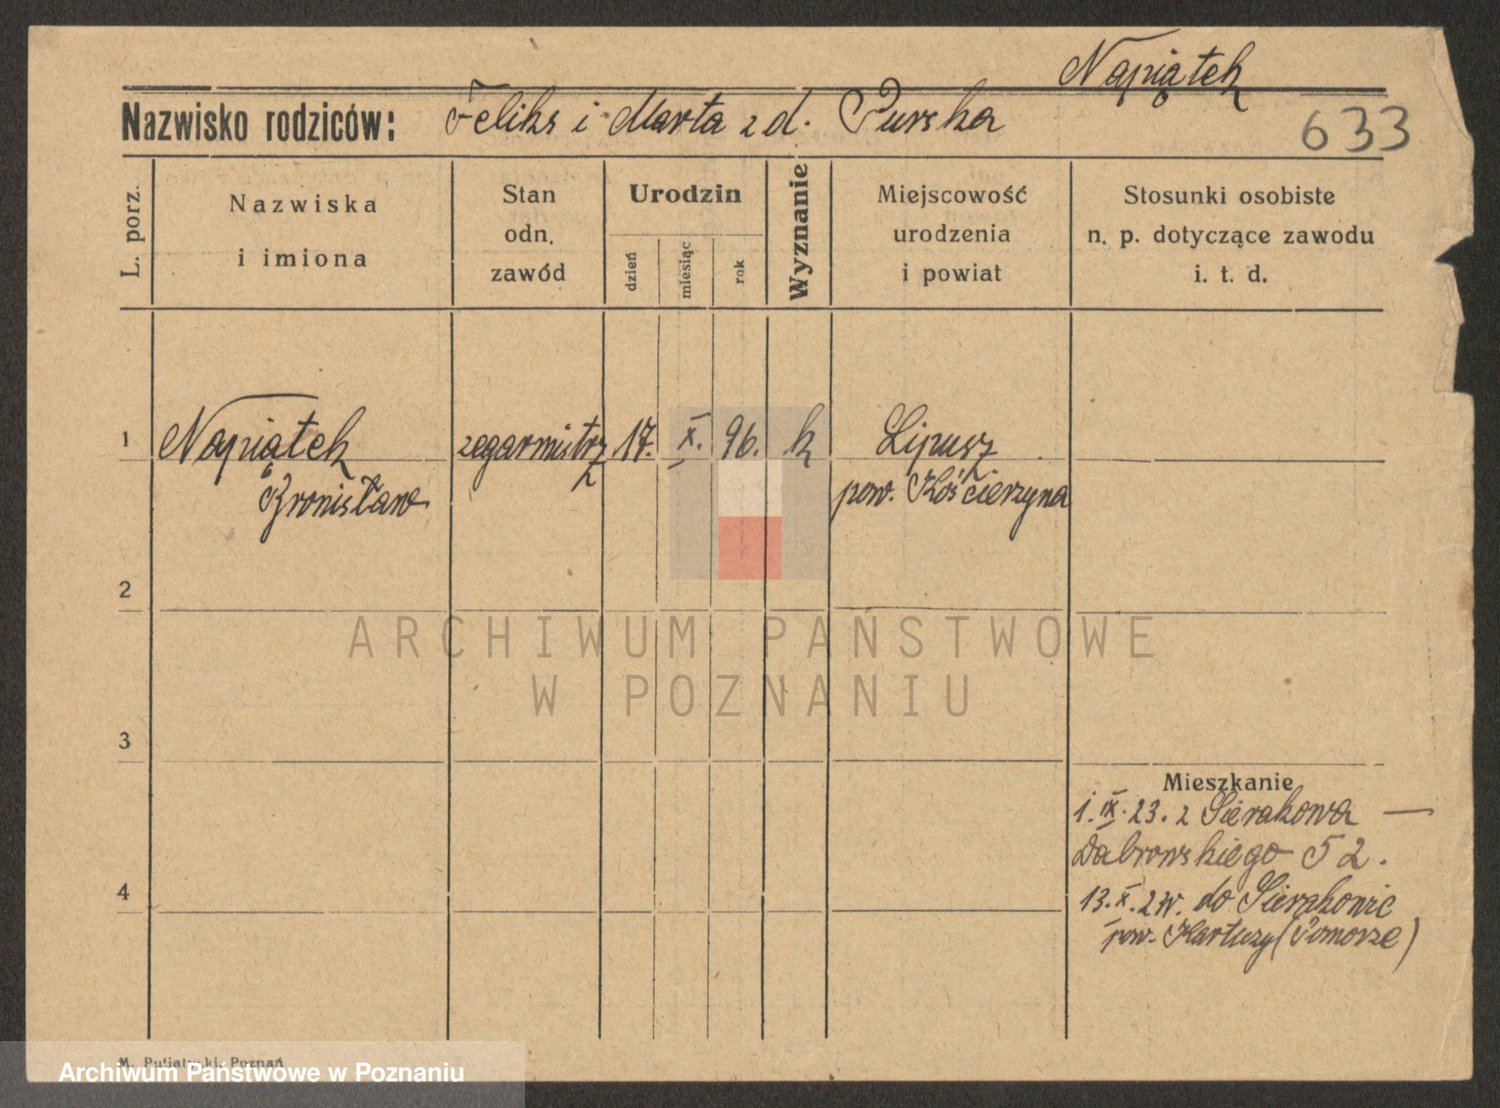 Napiątek
Nazwisko rodziców: Feliks i Marta z d. Purska
633
L. porz.
Nazwiska
i imiona
Stan
odn.
zawód
Urodzin
dzień
miesiąc
rok
Wyznanie
Miejscowość
urodzenia
i powiat
Stosunki osobiste
n. p. dotyczące zawodu
i. t. d.
1 Napiątek zegarmistrz 17. X. 96. k Lipusz
Bronisław pow. Kościerzyna
2
ARCHIWUM PAŃSTWOWE
W POZNANIU
3
Mieszkanie
1. IX. 23. z Sierakowa —
Dabrowskiego 52.
13. X. do Sierakowic
pow. Kartuzy (Pomorze)
4
M. Putiatycki, Poznań
Archiwum Państwowe w Poznaniu